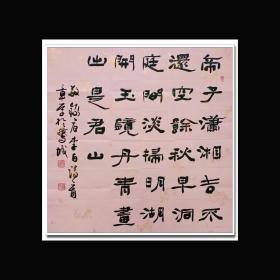 帝子瀟湘去不
還空餘秋草洞
庭間淡掃明湖
開玉鏡丹青畫
出是君山
李白詩一首